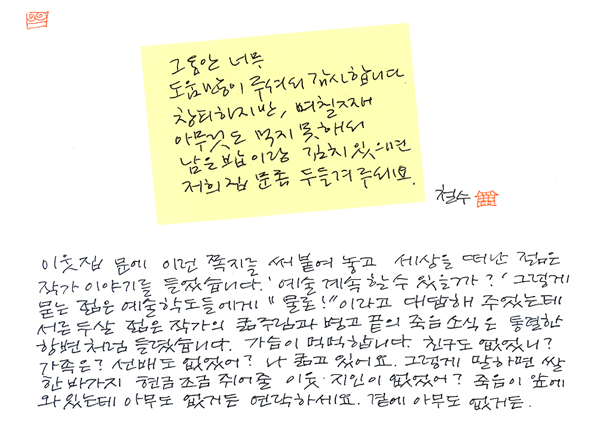 그동안 너무
도움 많이 주셔서 감사합니다
창피하지만, 며칠째
아무것도 먹지 못해서
남은 밥이랑 김치 있으면
저희집 문좀 두들겨 주세요.
철수
이웃집 문에 이런 쪽지를 써 붙여 놓고 세상을 떠난 젊은
작가 이야기를 들었습니다. '예술 계속 할 수 있을까?' 그렇게
묻는 젊은 예술학도들에게 "물론!" 이라고 대답해 주었는데
서른 두살 젊은 작가의 굶주림과 병고 끝의 죽음 소식은 통렬한
항변처럼 들렸습니다. 가슴이 먹먹합니다. 친구도 없었니?
가족은? 선배도 없었어? 나 굶고 있어요. 그렇게 말하면 쌀
한 바가지 현금 조금 쥐어줄 이웃·지인이 없었어? 죽음이 앞에
와 있는데 아무도 없거든 연락하세요. 곁에 아무도 없거든.